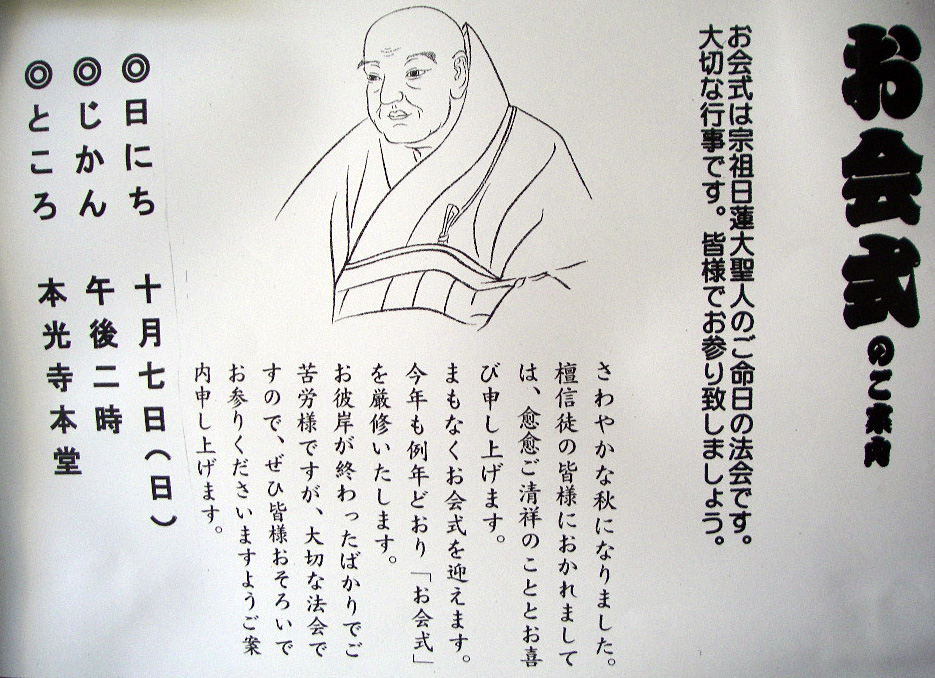 お会式のご案内
お会式は宗祖日蓮大聖人のご命日の法会です。
大切な行事です。皆様でお参り致しましょう。
さわやかな秋になりました。
檀信徒の皆様におかれまして
は、愈愈ご清祥のこととお喜
び申し上げます。
まもなくお会式を迎えます。
今年も例年どおり「お会式」
を厳修いたします。
お彼岸が終わったばかりでご
苦労様ですが、大切な法会で
すので、ぜひ皆様おそろいで
お参りくださいますようご案
内申し上げます。
◎日にち 十月七日(日)
◎じかん 午後二時
◎ところ 本光寺本堂